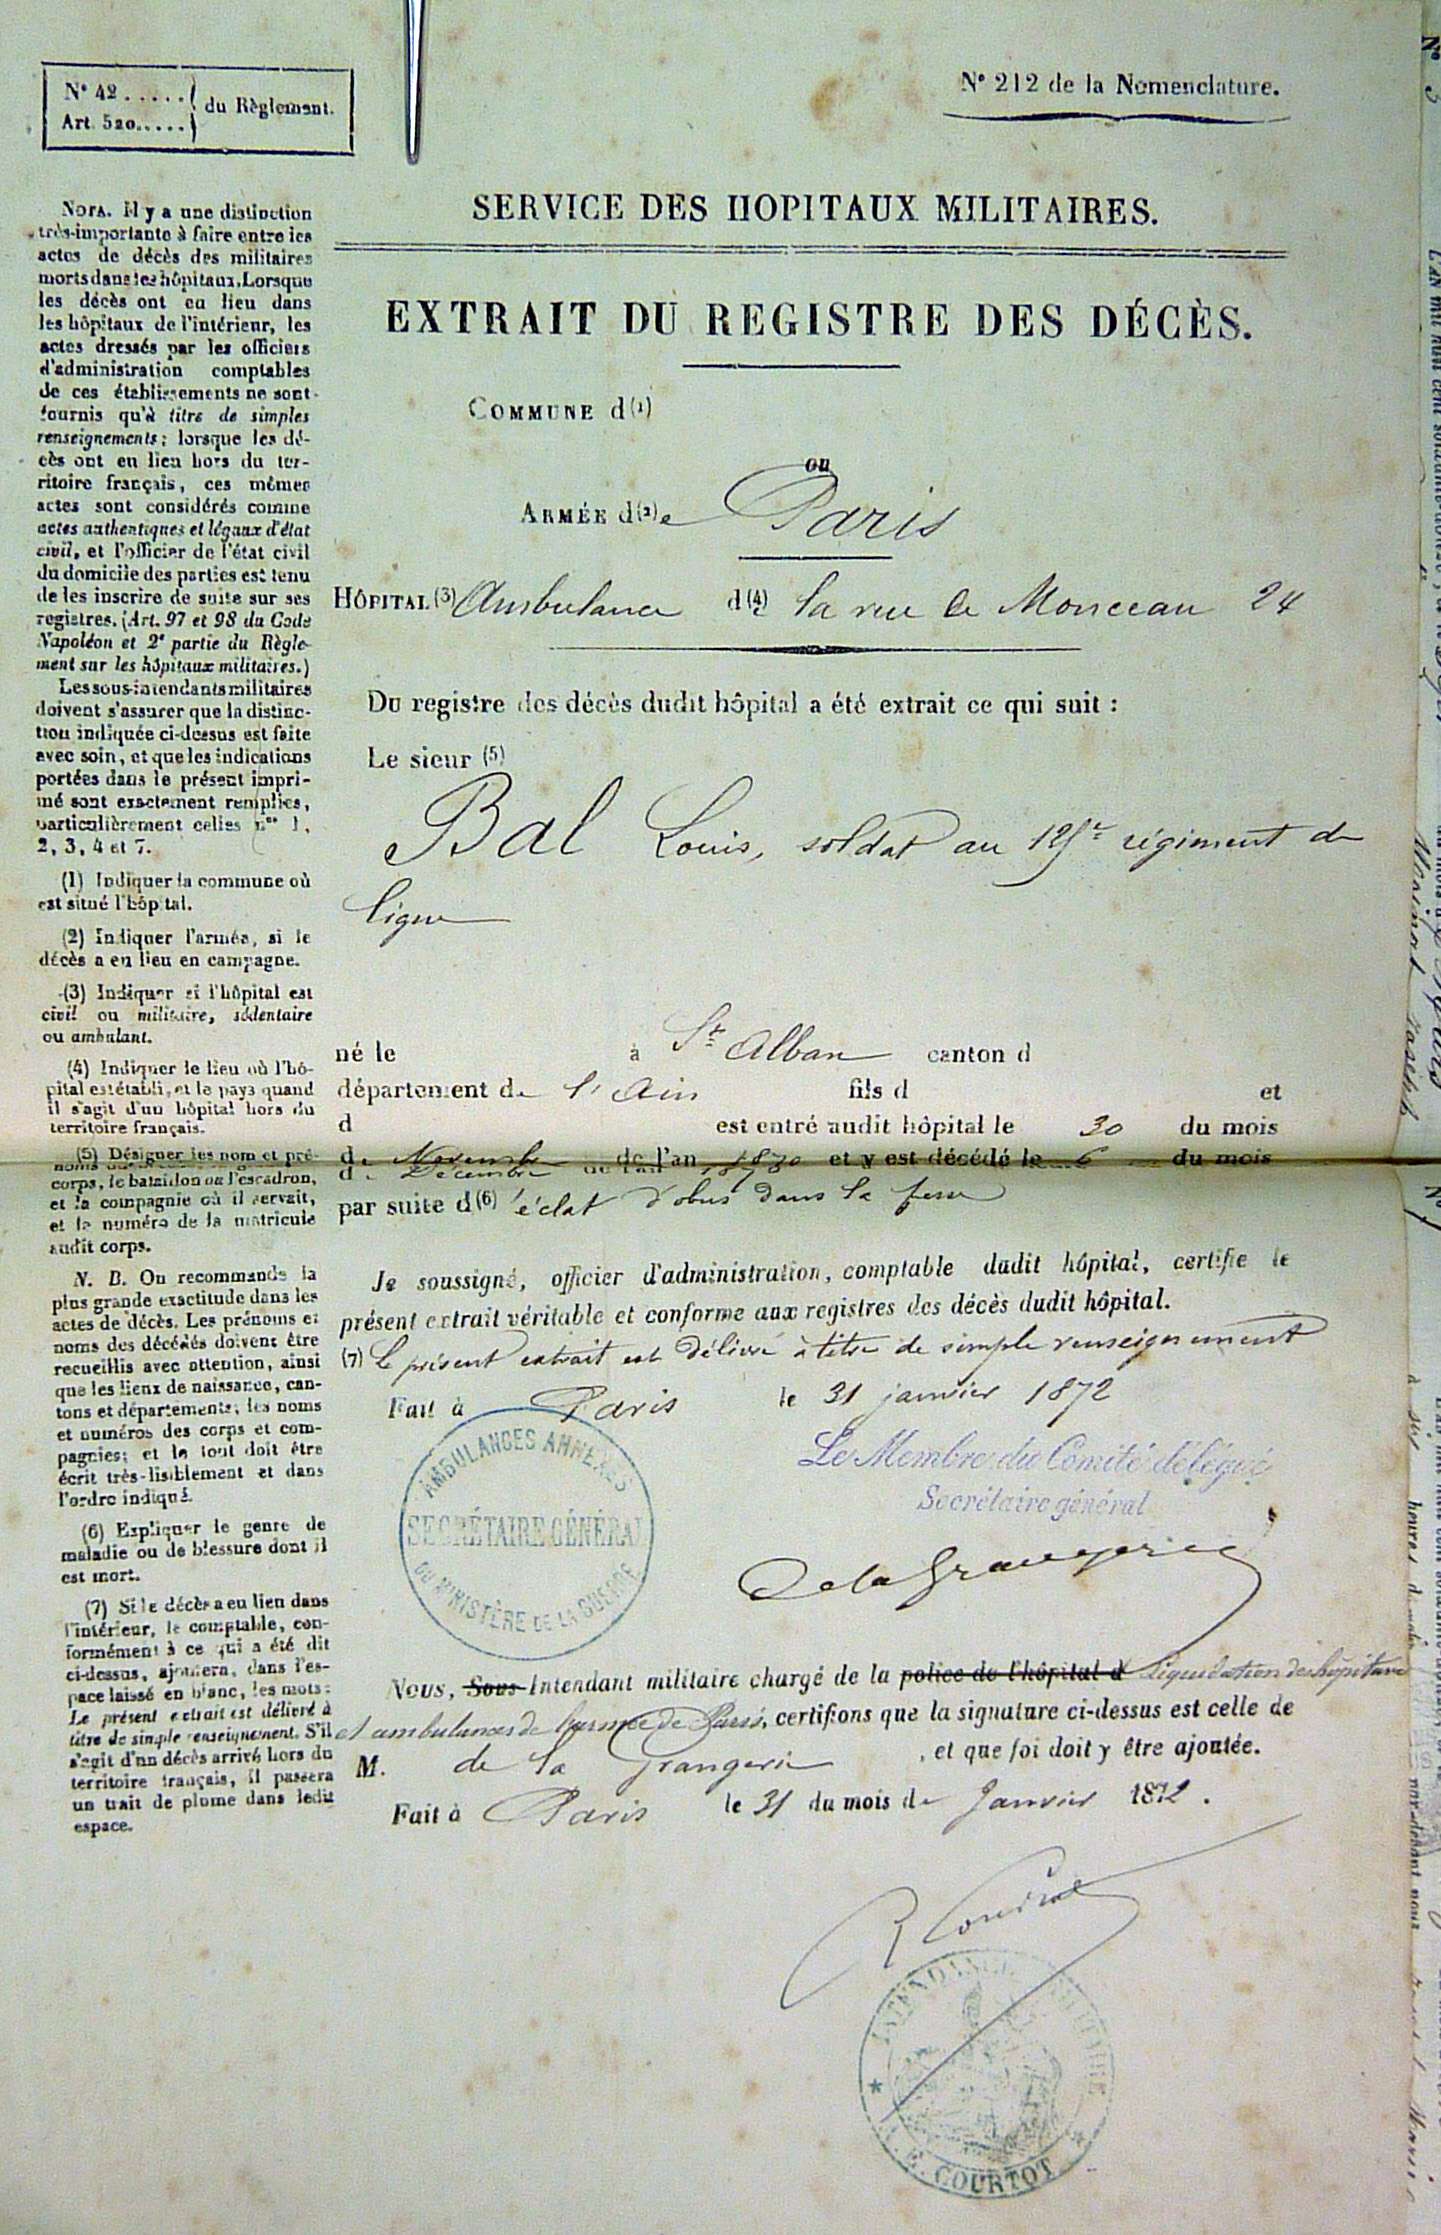 N° 42 ..... du Règlement.
Art. 520.....
N° 212 de la Nomenclature.
SERVICE DES HOPITAUX MILITAIRES.
EXTRAIT DU REGISTRE DES DÉCÈS.
COMMUNE d(1)
ou
ARMÉE d(2)e Paris
HÔPITAL (3) Ambulance d(4)e la rue de Monceau 24
Du registre des décès dudit hôpital a été extrait ce qui suit :
Le sieur (5)
Bal Louis, soldat au régiment de
ligne
né le à St Alban canton d
département de l'Ain fils d et
d est entré audit hôpital le 30 du mois
de Novembre de l'an 1870 et y est décédé le 6 du mois
de Décembre de l'an 187
par suite d(6) 'éclat d'obus dans la fesse
Je soussigné, officier d'administration, comptable dudit hôpital, certifie le
présent extrait véritable et conforme aux registres des décès dudit hôpital.
(7) Le présent extrait est délivré à titre de simple renseignement
Fait à Paris le 31 janvier 1872
Le Membre du Comité délégué
Secrétaire général
AMBULANCES ANNEXES
SECRÉTAIRE GÉNÉRAL
DU MINISTÈRE DE LA GUERRE
de la Grangerie
Nous, Sous-Intendant militaire chargé de la police de l'hôpital d liquidation des hôpitaux
et ambulances de l'armée de Paris, certifions que la signature ci-dessus est celle de
M. de la Grangerie, et que foi doit y être ajoutée.
Fait à Paris le 31 du mois de Janvier 1872.
INTENDANCE MILITAIRE
COURTOT
NOTA. Il y a une distinction
très-importante à faire entre les
actes de décès des militaires
morts dans les hôpitaux. Lorsque
les décès ont eu lieu dans
les hôpitaux de l'intérieur, les
actes dressés par les officiers
d'administration comptables
de ces établissements ne sont
fournis qu'à titre de simples
renseignements; lorsque les dé-
cès ont eu lieu hors du ter-
ritoire français, ces mêmes
actes sont considérés comme
actes authentiques et légaux d'état
civil, et l'officier de l'état civil
du domicile des parties est tenu
de les inscrire de suite sur ses
registres. (Art. 97 et 98 du Code
Napoléon et 2e partie du Règle-
ment sur les hôpitaux militaires.)
Les sous-intendants militaires
doivent s'assurer que la distinc-
tion indiquée ci-dessus est faite
avec soin, et que les indications
portées dans le présent impri-
mé sont exactement remplies,
particulièrement celles nos 1,
2, 3, 4 et 7.
(1) Indiquer la commune où
est situé l'hôpital.
(2) Indiquer l'armée, si le
décès a eu lieu en campagne.
(3) Indiquer si l'hôpital est
civil ou militaire, sédentaire
ou ambulant.
(4) Indiquer le lieu où l'hô-
pital est établi, et le pays quand
il s'agit d'un hôpital hors du
territoire français.
(5) Désigner les nom et pré-
noms
corps, le bataillon ou l'escadron,
et la compagnie où il servait,
et le numéro de la matricule
audit corps.
N. B. On recommande la
plus grande exactitude dans les
actes de décès. Les prénoms et
noms des décédés doivent être
recueillis avec attention, ainsi
que les lieux de naissance, can-
tons et départements; les noms
et numéros des corps et com-
pagnies; et le tout doit être
écrit très-lisiblement et dans
l'ordre indiqué.
(6) Expliquer le genre de
maladie ou de blessure dont il
est mort.
(7) Si le décès a eu lieu dans
l'intérieur, le comptable, con-
formément à ce qui a été dit
ci-dessus, ajoutera, dans l'es-
pace laissé en blanc, les mots:
Le présent extrait est délivré à
titre de simple renseignement. S'il
s'agit d'un décès arrivé hors du
territoire français, il passera
un trait de plume dans ledit
espace.